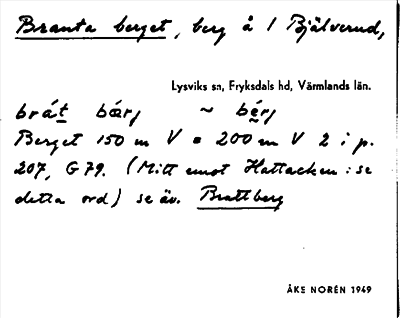 Branta berget, berg å 1 Bjälverud,
Lysviks sn, Fryksdals hd, Värmlands län.
brát bærj ~ bérj
Berget 150 m V = 200 m V 2 i p.
207, G 79. (Mitt emot Hattacken : se
detta ord) se äv. Brattberg
ÅKE NORÉN 1949